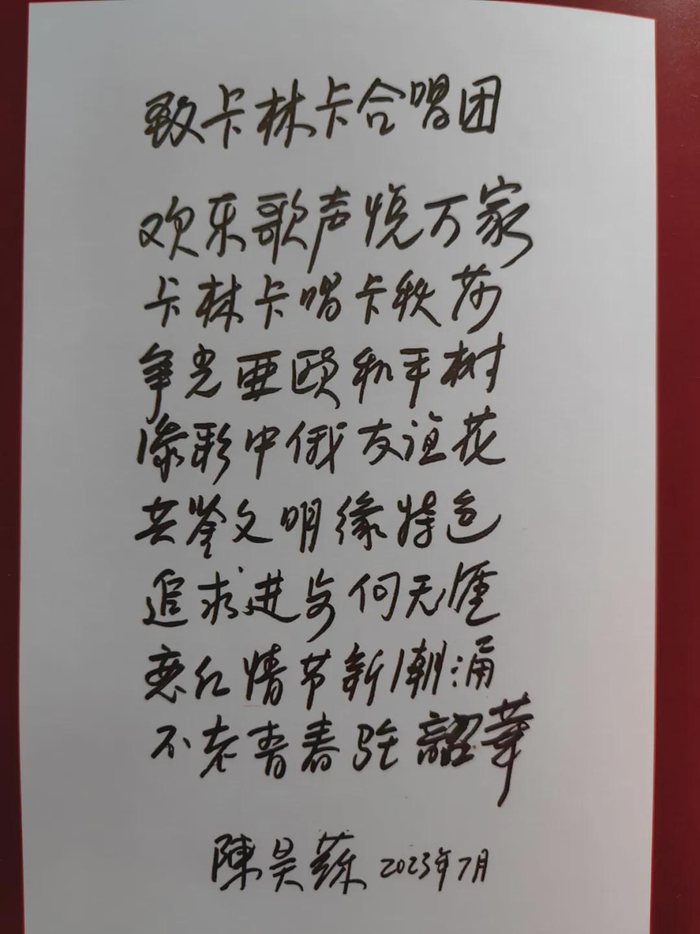 致卡林卡合唱团
欢乐歌声悦万家
卡林卡唱卡秋莎
争光亚欧和平树
添彩中俄友谊花
共鉴文明缘特色
追求进步何无涯
恋红情节新潮涌
不老青春驻韶华
陳昊蘇 2023年7月